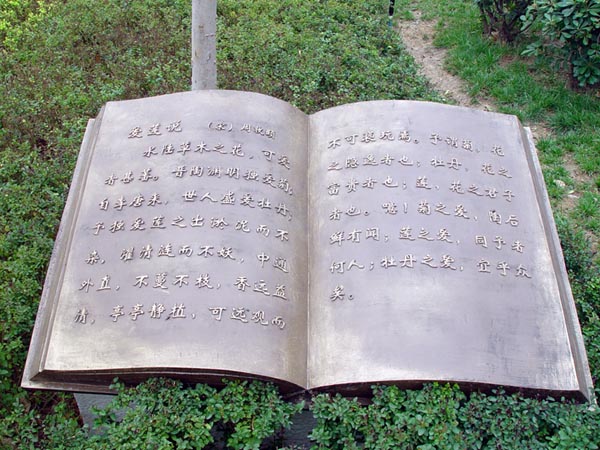 爱莲说 (宋)周敦颐
水陆草木之花，可爱
者甚蕃。晋陶渊明独爱菊；
自李唐来，世人盛爱牡丹；
予独爱莲之出淤泥而不
染，濯清涟而不妖，中通
外直，不蔓不枝，香远益
清，亭亭静植，可远观而
不可亵玩焉。予谓菊，花
之隐逸者也；牡丹，花之
富贵者也；莲，花之君子
者也。噫！菊之爱，陶后
鲜有闻；莲之爱，同予者
何人；牡丹之爱，宜乎众
矣。